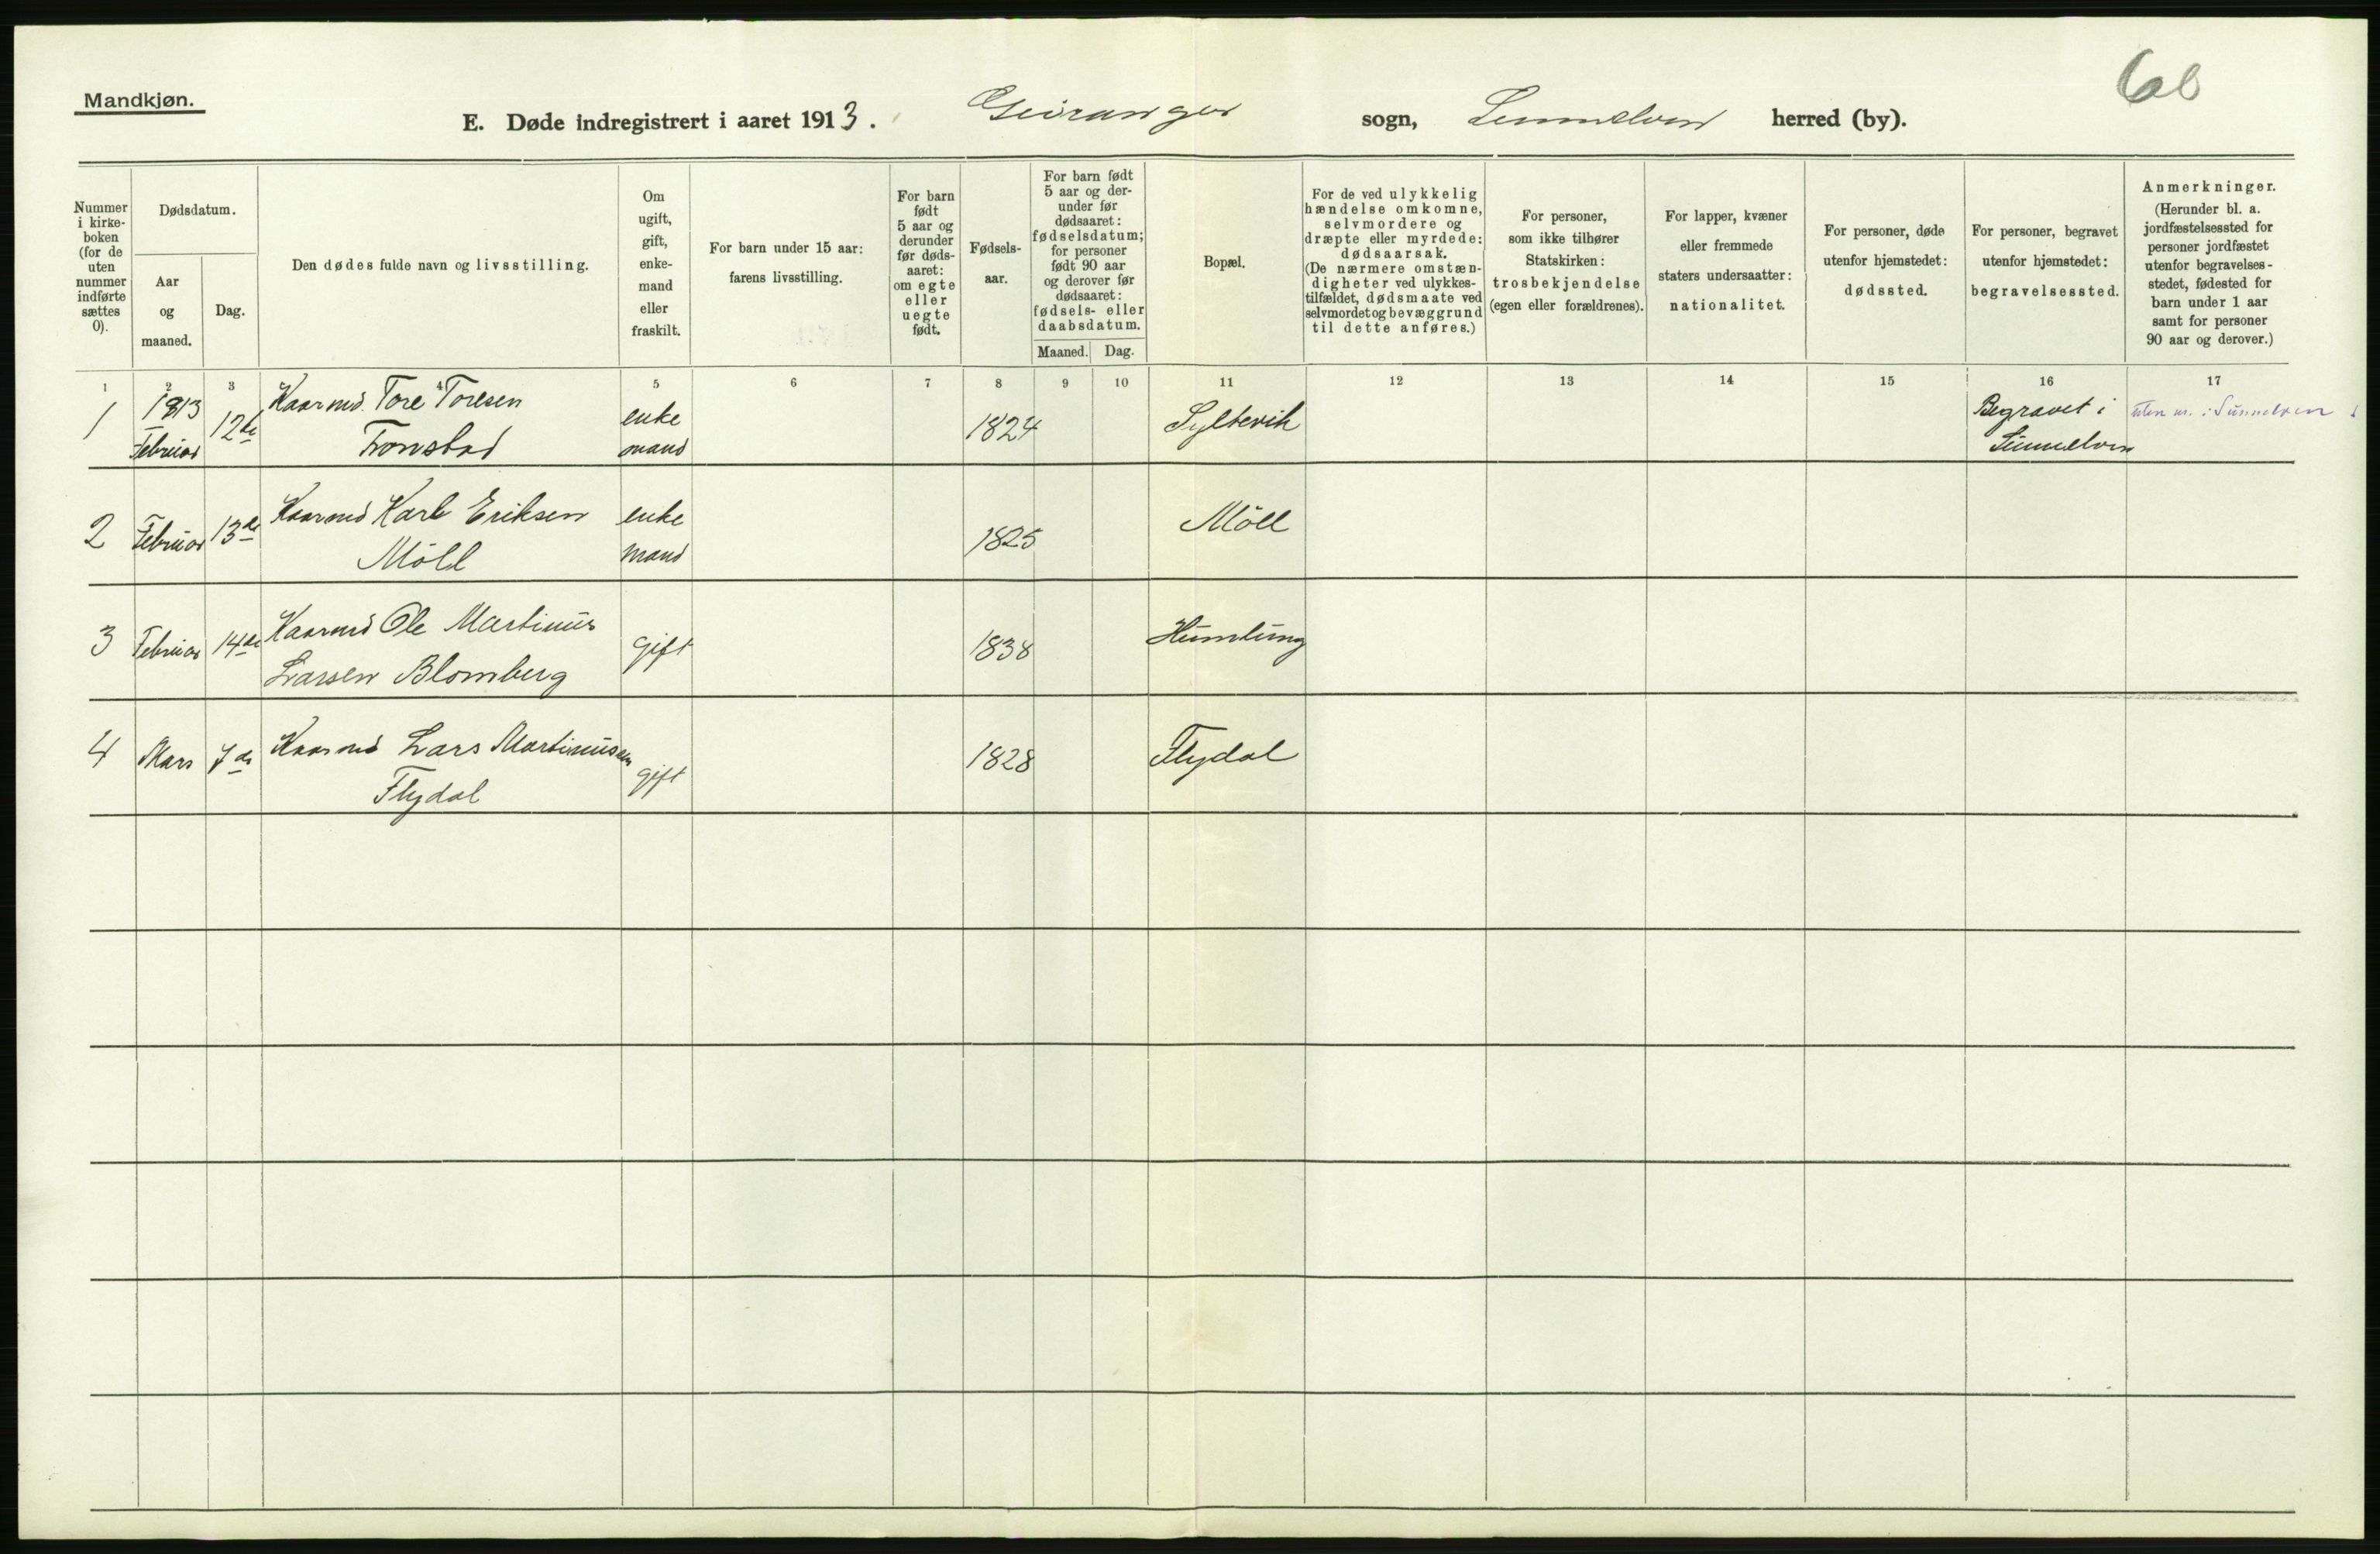 Mandkjøn.
6b
E. Døde indregistrert i aaret 1913. Geiranger sogn, Sunnelven herred (by).
Nummer i kirke- boken (for de uten nummer indførte sættes 0).
Dødsdatum.
Aar og maaned.
Dag.
Den dødes fulde navn og livsstilling.
Om ugift, gift, enke- mand eller fraskilt.
For barn under 15 aar: farens livsstilling.
For barn født 5 aar og derunder før døds- aaret: om egte eller uegte født.
Fødsels- aar.
For barn født 5 aar og der- under før dødsaaret: fødselsdatum; for personer født 90 aar og derover før dødsaaret: fødsels- eller daabsdatum.
Maaned. Dag.
Bopæl.
For de ved ulykkelig hændelse omkomne, selvmordere og dræpte eller myrdede: dødsaarsak. (De nærmere omstæn- digheter ved ulykkes- tilfældet, dødsmaate ved selvmordet og bevæggrund til dette anføres.)
For personer, som ikke tilhører Statskirken: trosbekjendelse (egen eller forældrenes).
For lapper, kvæner eller fremmede staters undersaatter: nationalitet.
For personer, døde utenfor hjemstedet: dødssted.
For personer, begravet utenfor hjemstedet: begravelsessted.
Anmerkninger. (Herunder bl. a. jordfæstelsessted for personer jordfæstet utenfor begravelses- stedet, fødested for barn under 1 aar samt for personer 90 aar og derover.)
1 2 3 4 5 6 7 8 9 10 11 12 13 14 15 16 17
1 1913 Februar 12te Kaarmd. Tore Toresen Tronstad enke mand 1824 Syltevik Begravet i Sunnelven uten nr. i Sunnelven
2 Februar 13de Kaarmd Karl Eriksen Möll enke mand 1825 Möll
3 Februar 14de Kaarmd Ole Martinus Larsen Blomberg gift 1838 Humlung
4 Mars 7de Kaarmd Lars Martinussen Flydal gift 1828 Flydal